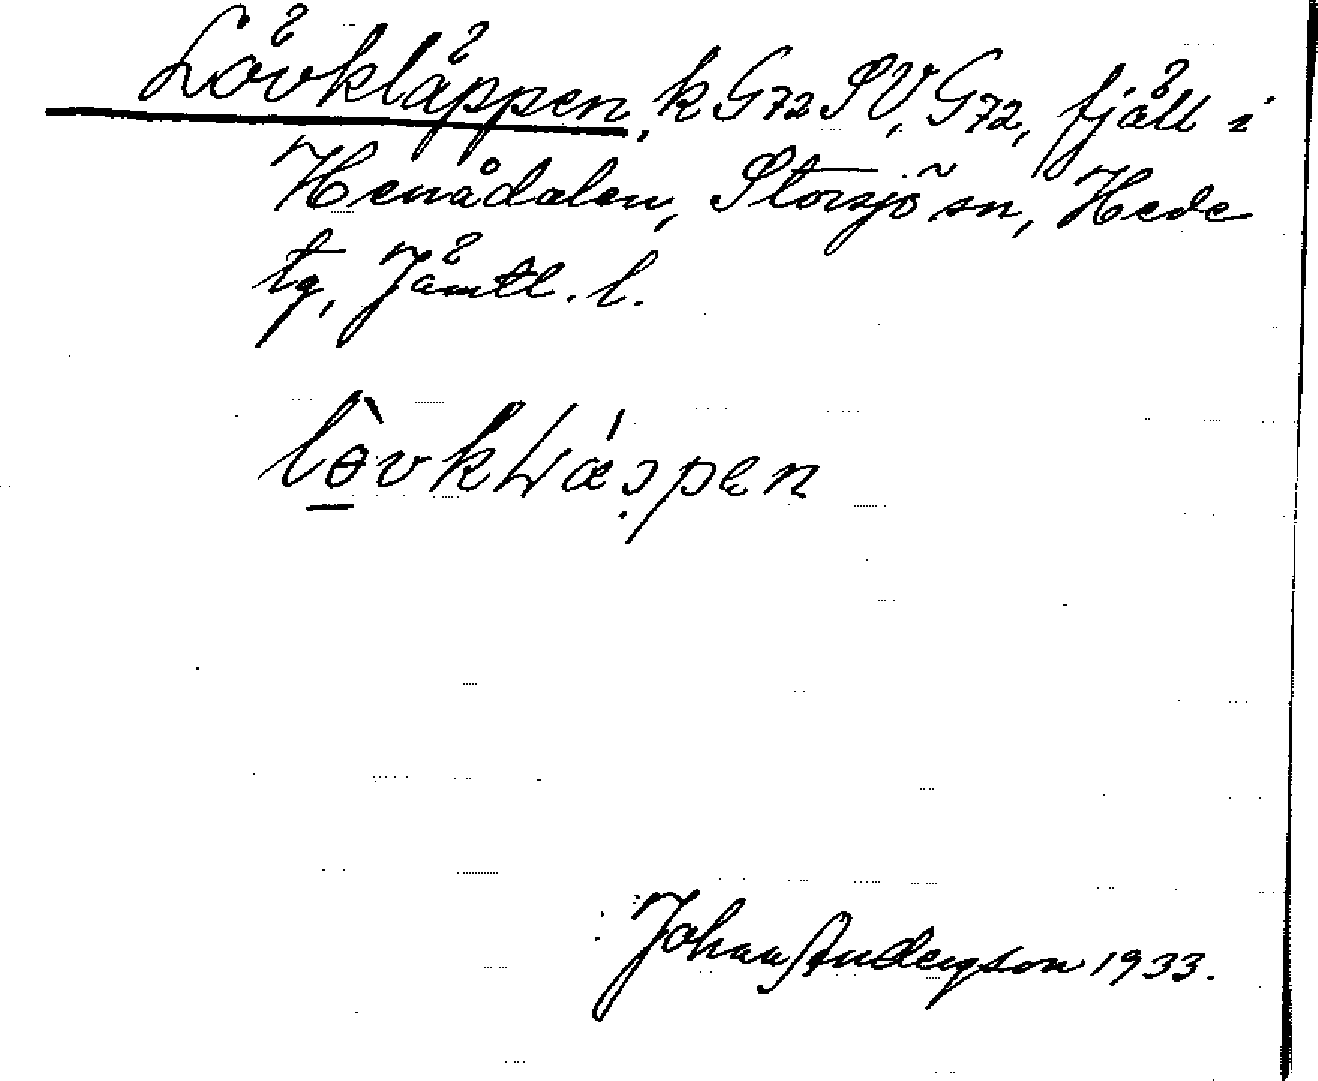 Lövkläppen, k G72 SV, G72, fjäll i
Henådalen, Storsjö sn, Hede
tg, Jämtl. l.
Johan Anderson 1933.